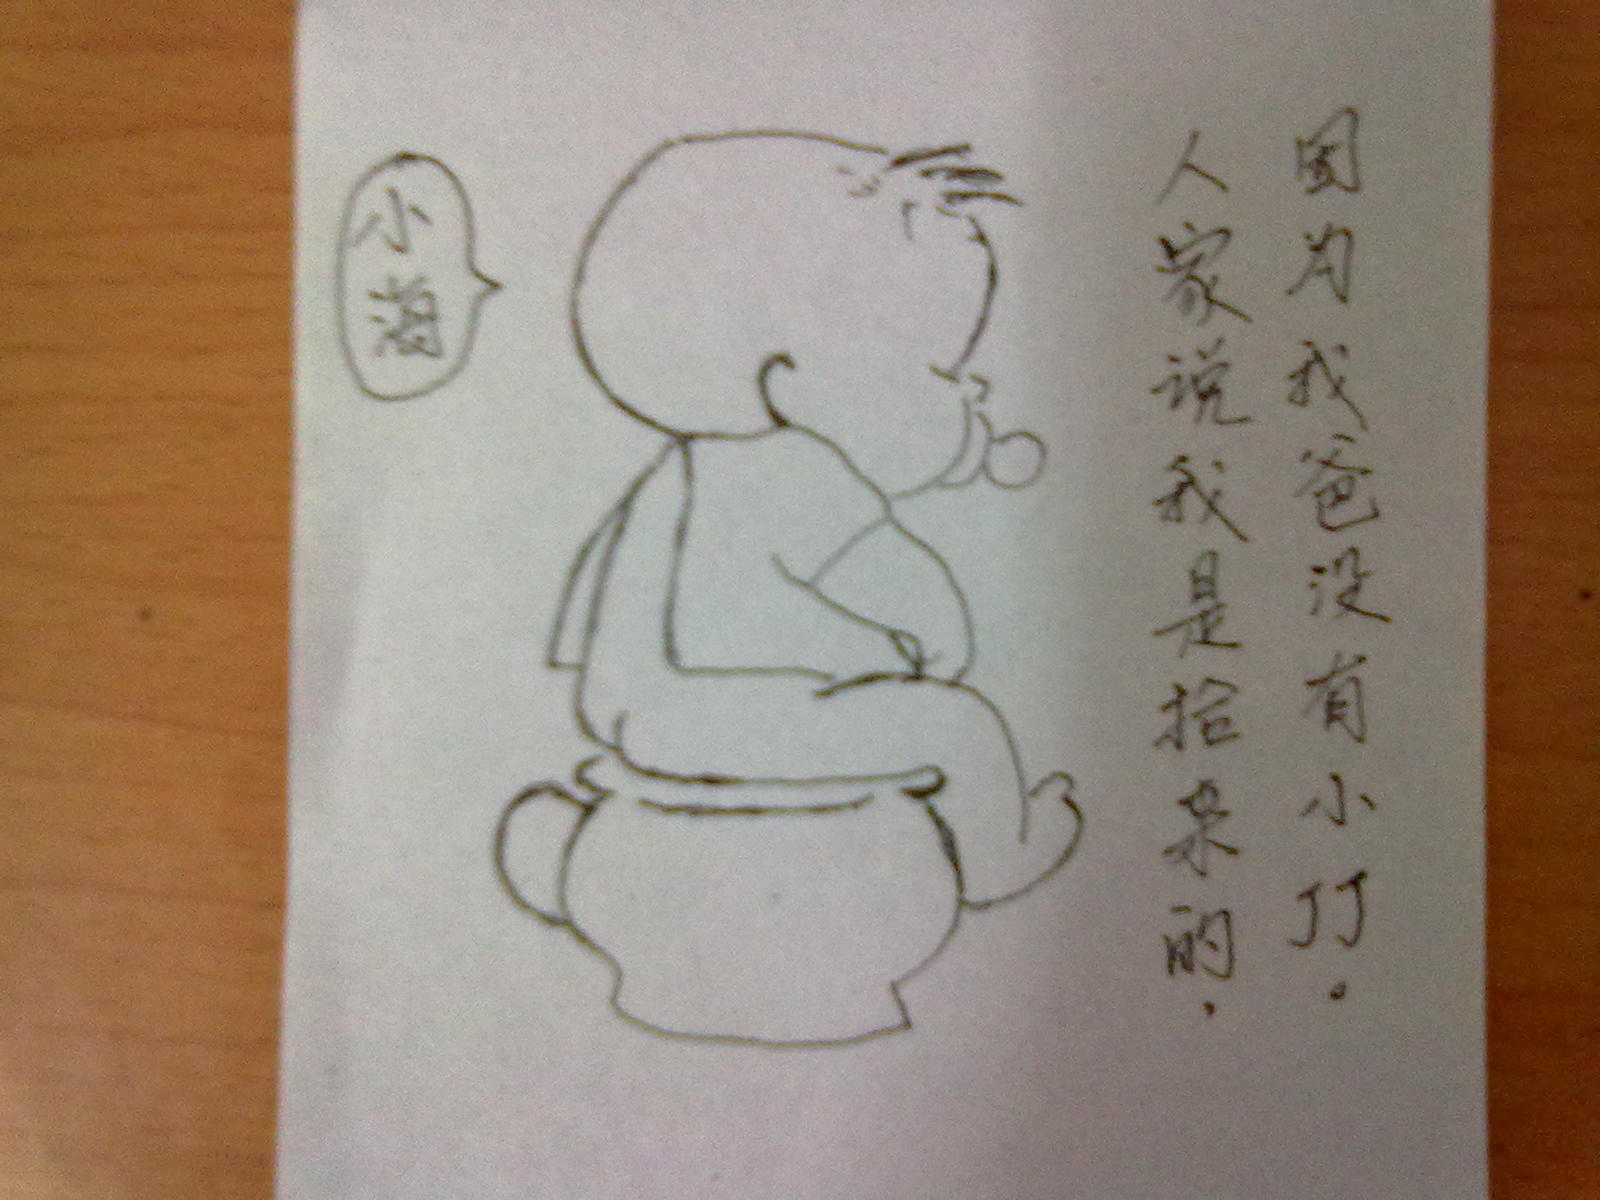 因为我爸没有小JJ。
人家说我是拾来的.
小